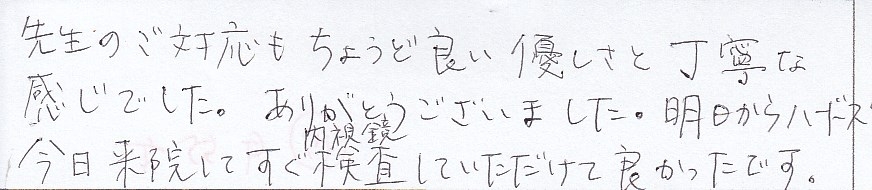 先生のご対応もちょうど良い優しさと丁寧な
感じでした。ありがとうございました。明日からハードス
内視鏡
今日来院してすぐ検査していただけて良かったです。